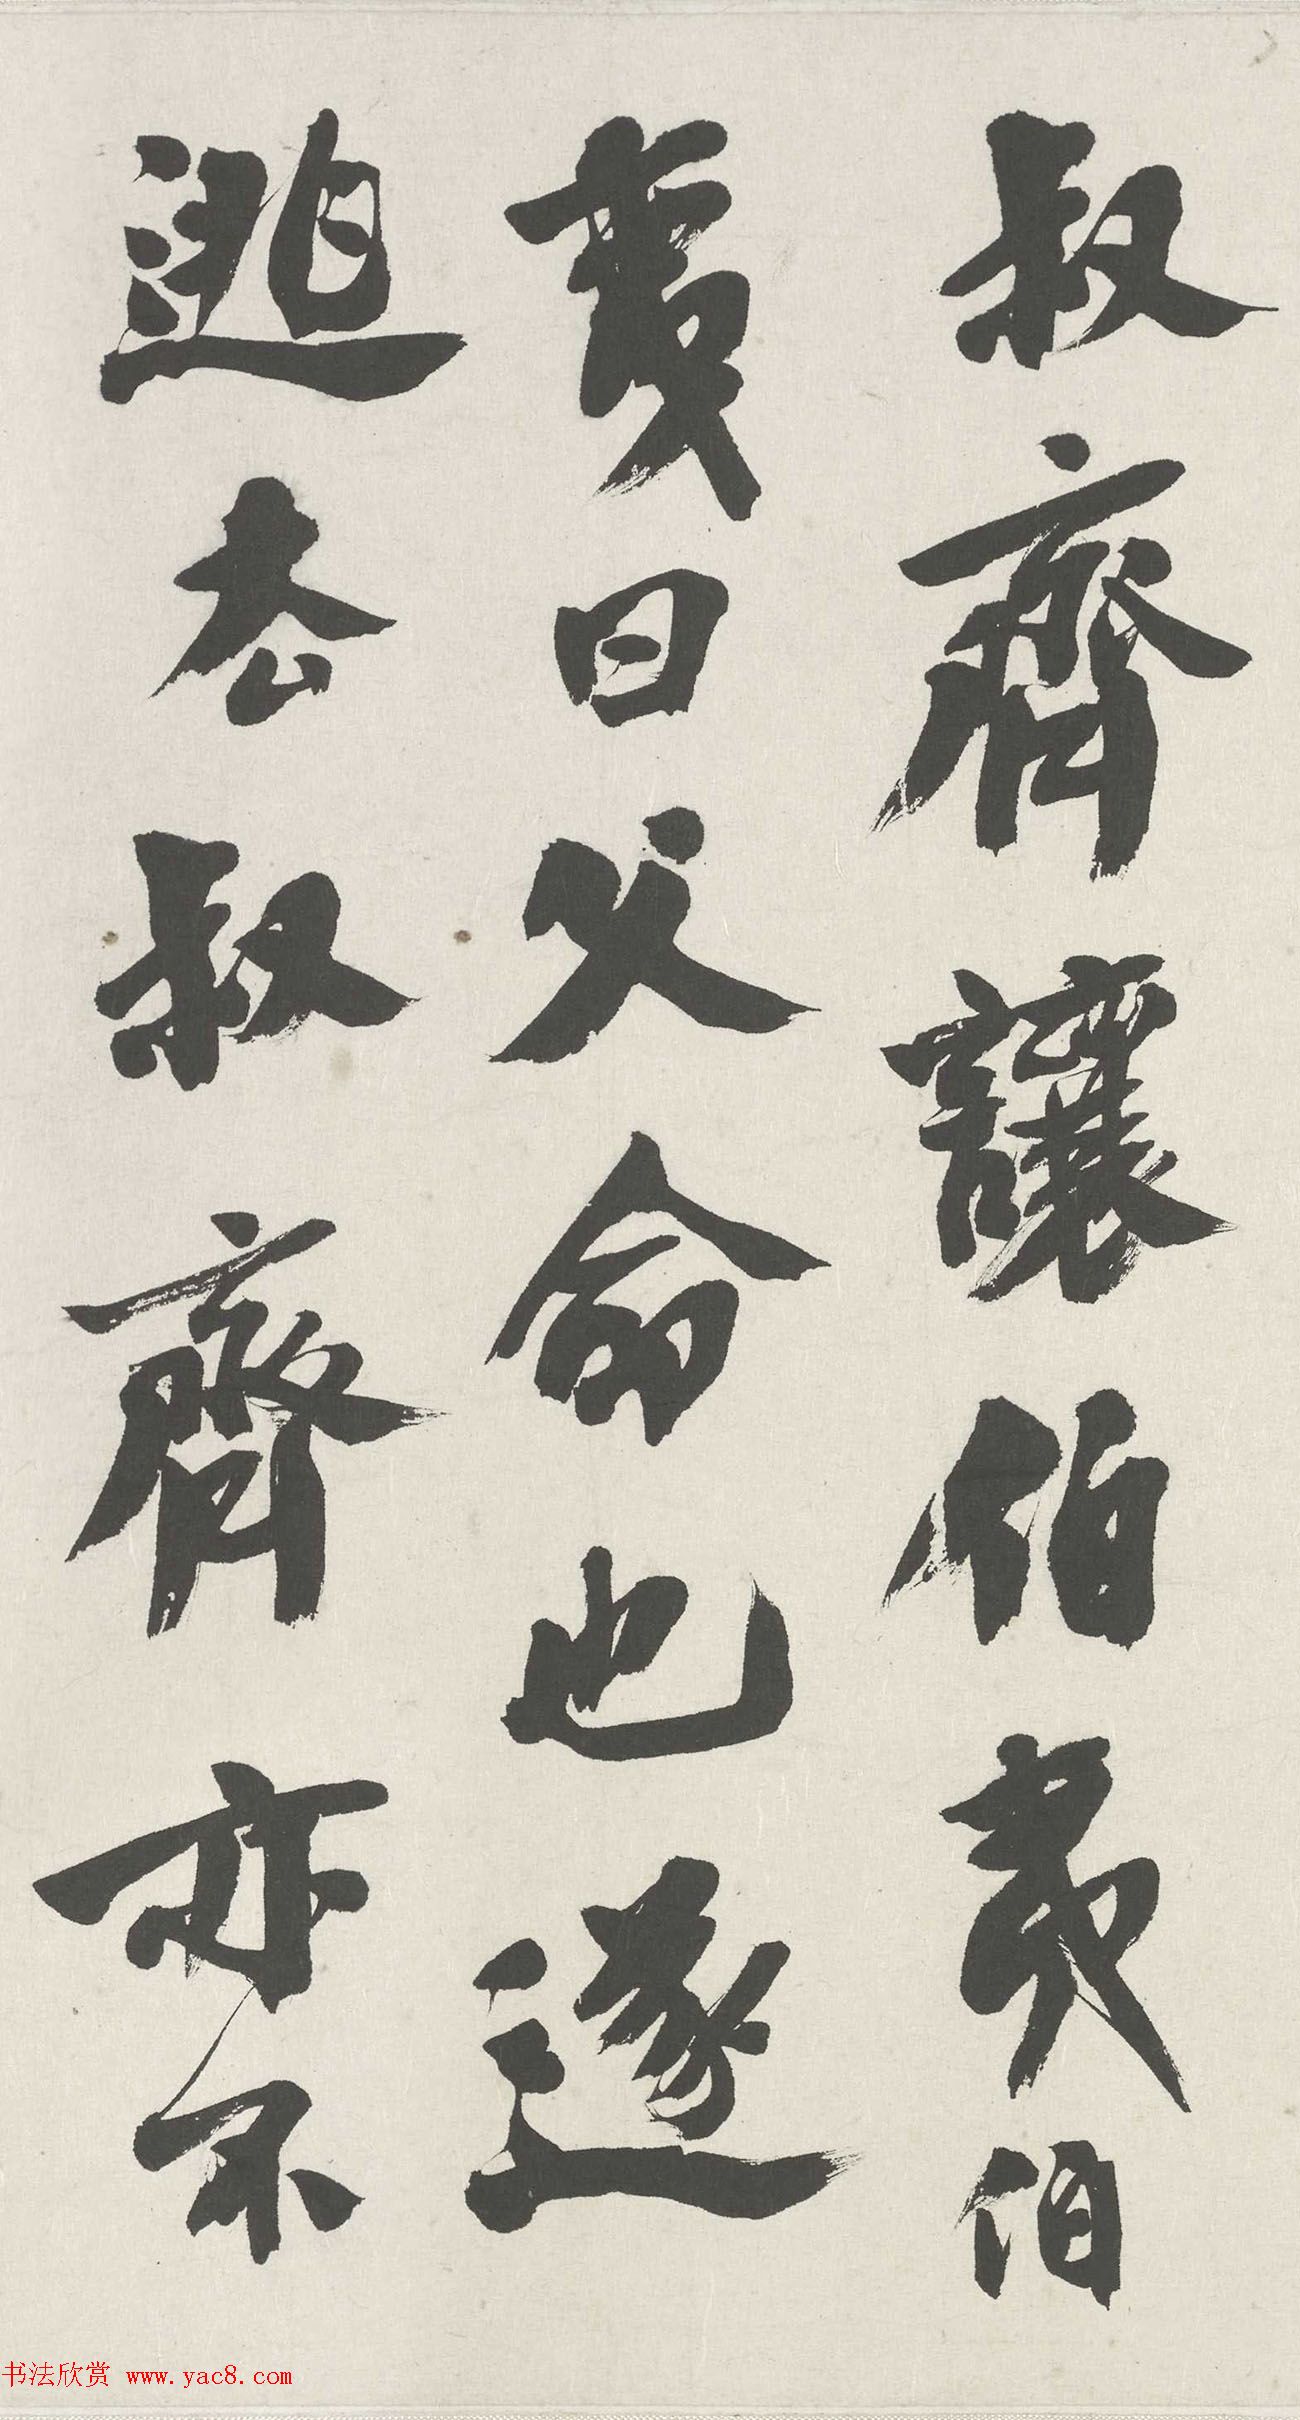 叔齊讓伯夷伯
夷曰父命也遂
逃去叔齊亦不
书法欣赏 www.yac8.com